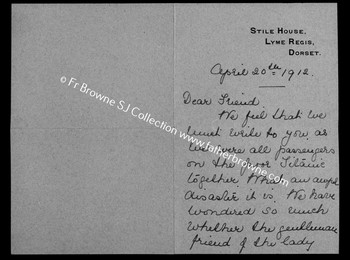 STILE HOUSE,
LYME REGIS,
DORSET.
April 20th 1912.
Dear Friend.
We feel that we
must write to you, as
we were all passengers
on the poor Titanic
together. What an awful
disaster it is. We have
wondered so much
whether the gentleman
friend of the lady
© Fr Browne SJ Collection
www.fatherbrowne.com